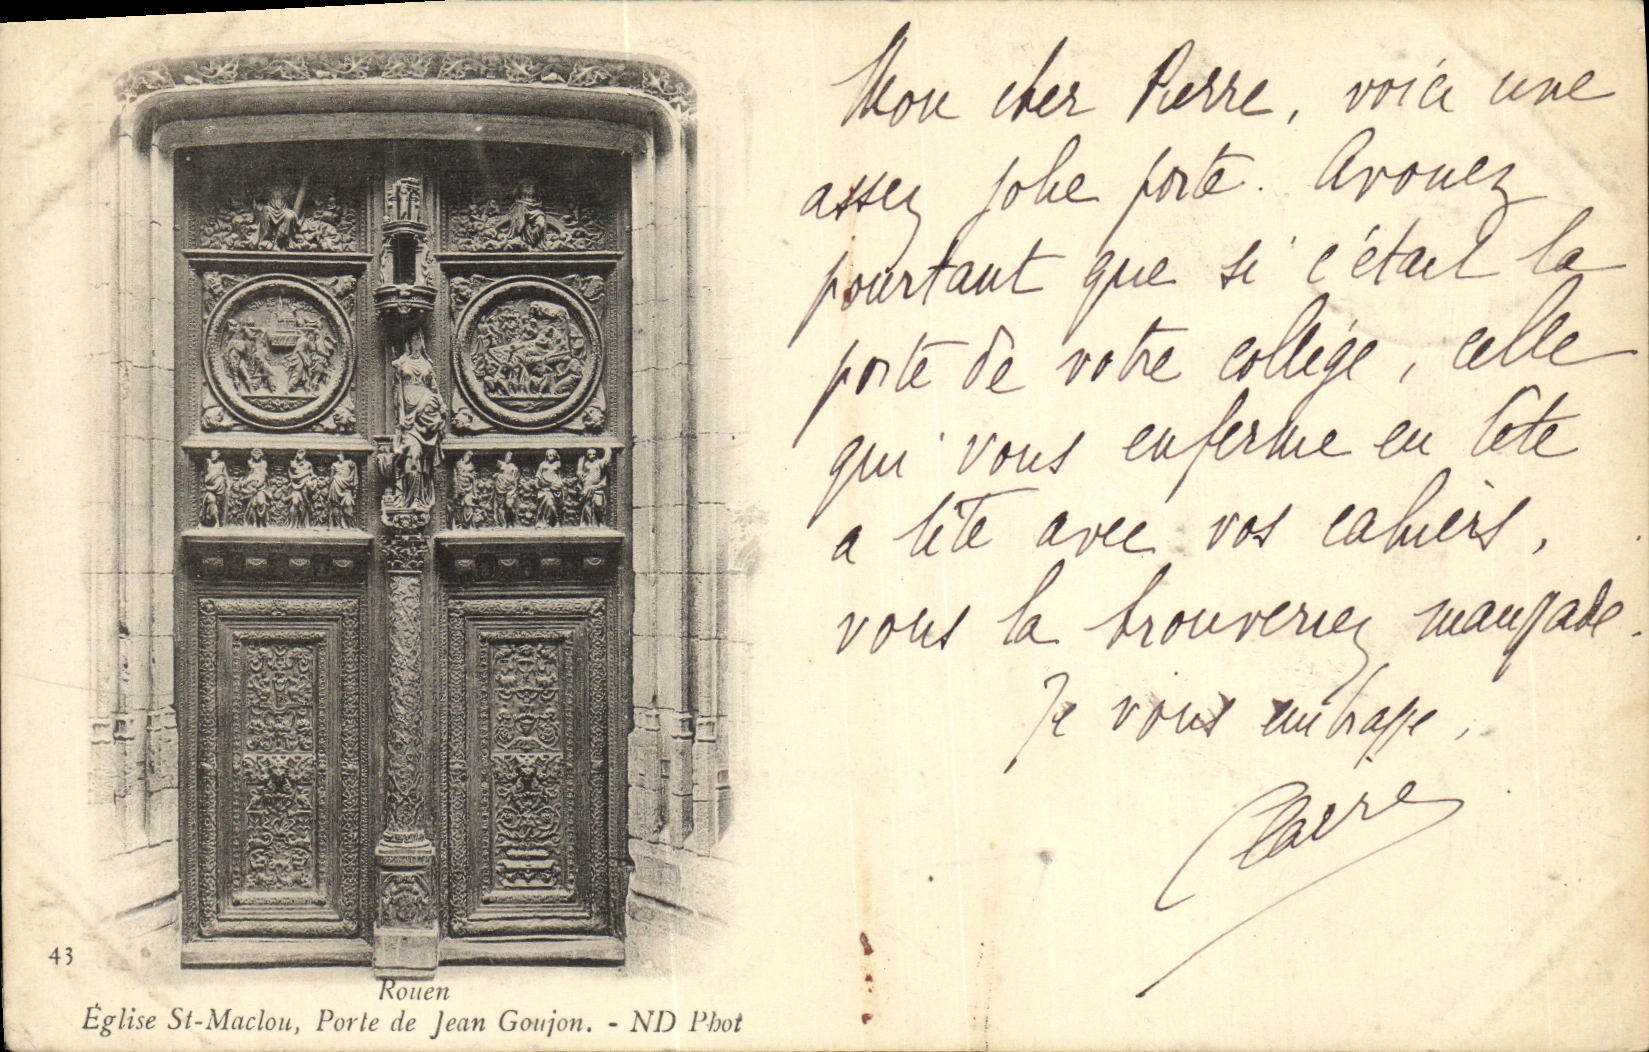 Mon cher Pierre, voici une
assez jolie porte. Avouez
pourtant que si c'était la
porte de votre collège, celle
qui vous enferme en tête
a tête avec vos cahiers,
vous la trouveriez maussade.
Je vous embrasse,
Claire
43
Rouen
Église St-Maclou, Porte de Jean Goujon. - ND Phot